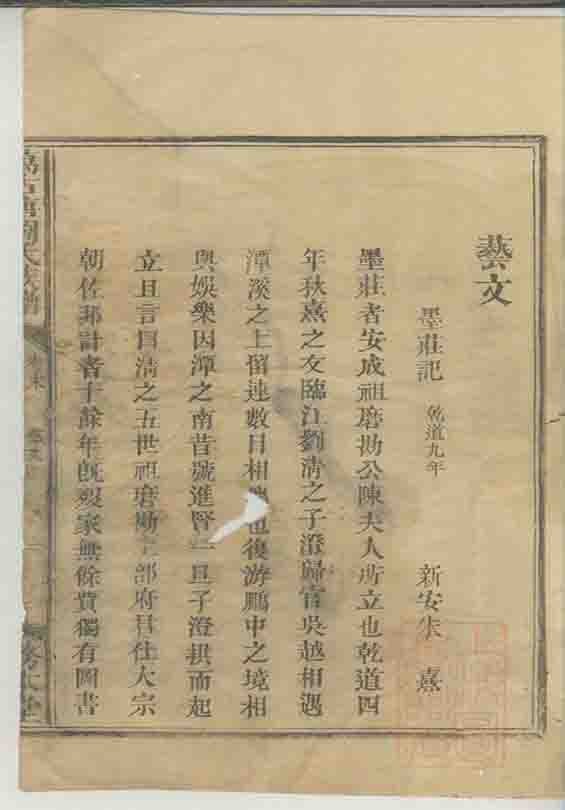 藝文
墨莊記 乾道九年 新安朱熹
墨莊者安成祖磨勘公陳夫人所立也乾道四
年秋熹之友臨江劉清之子澄歸官吳越相遇
潭溪之上留連數日相也復游鵬中之境相
與娛樂因潭之南昔號進賢一旦子澄拱而起
立且言曰清之五世祖磨勘工部府君仕大宗
朝佐邦計者十餘年既歿家無餘貲獨有圖書
劉氏族譜